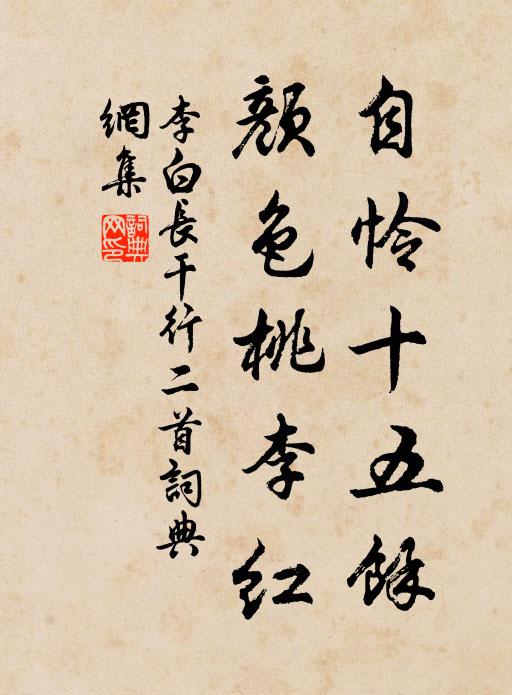 自怜十五餘
顏色桃李紅
李白長干行二首詞典
網集
詞典
网印